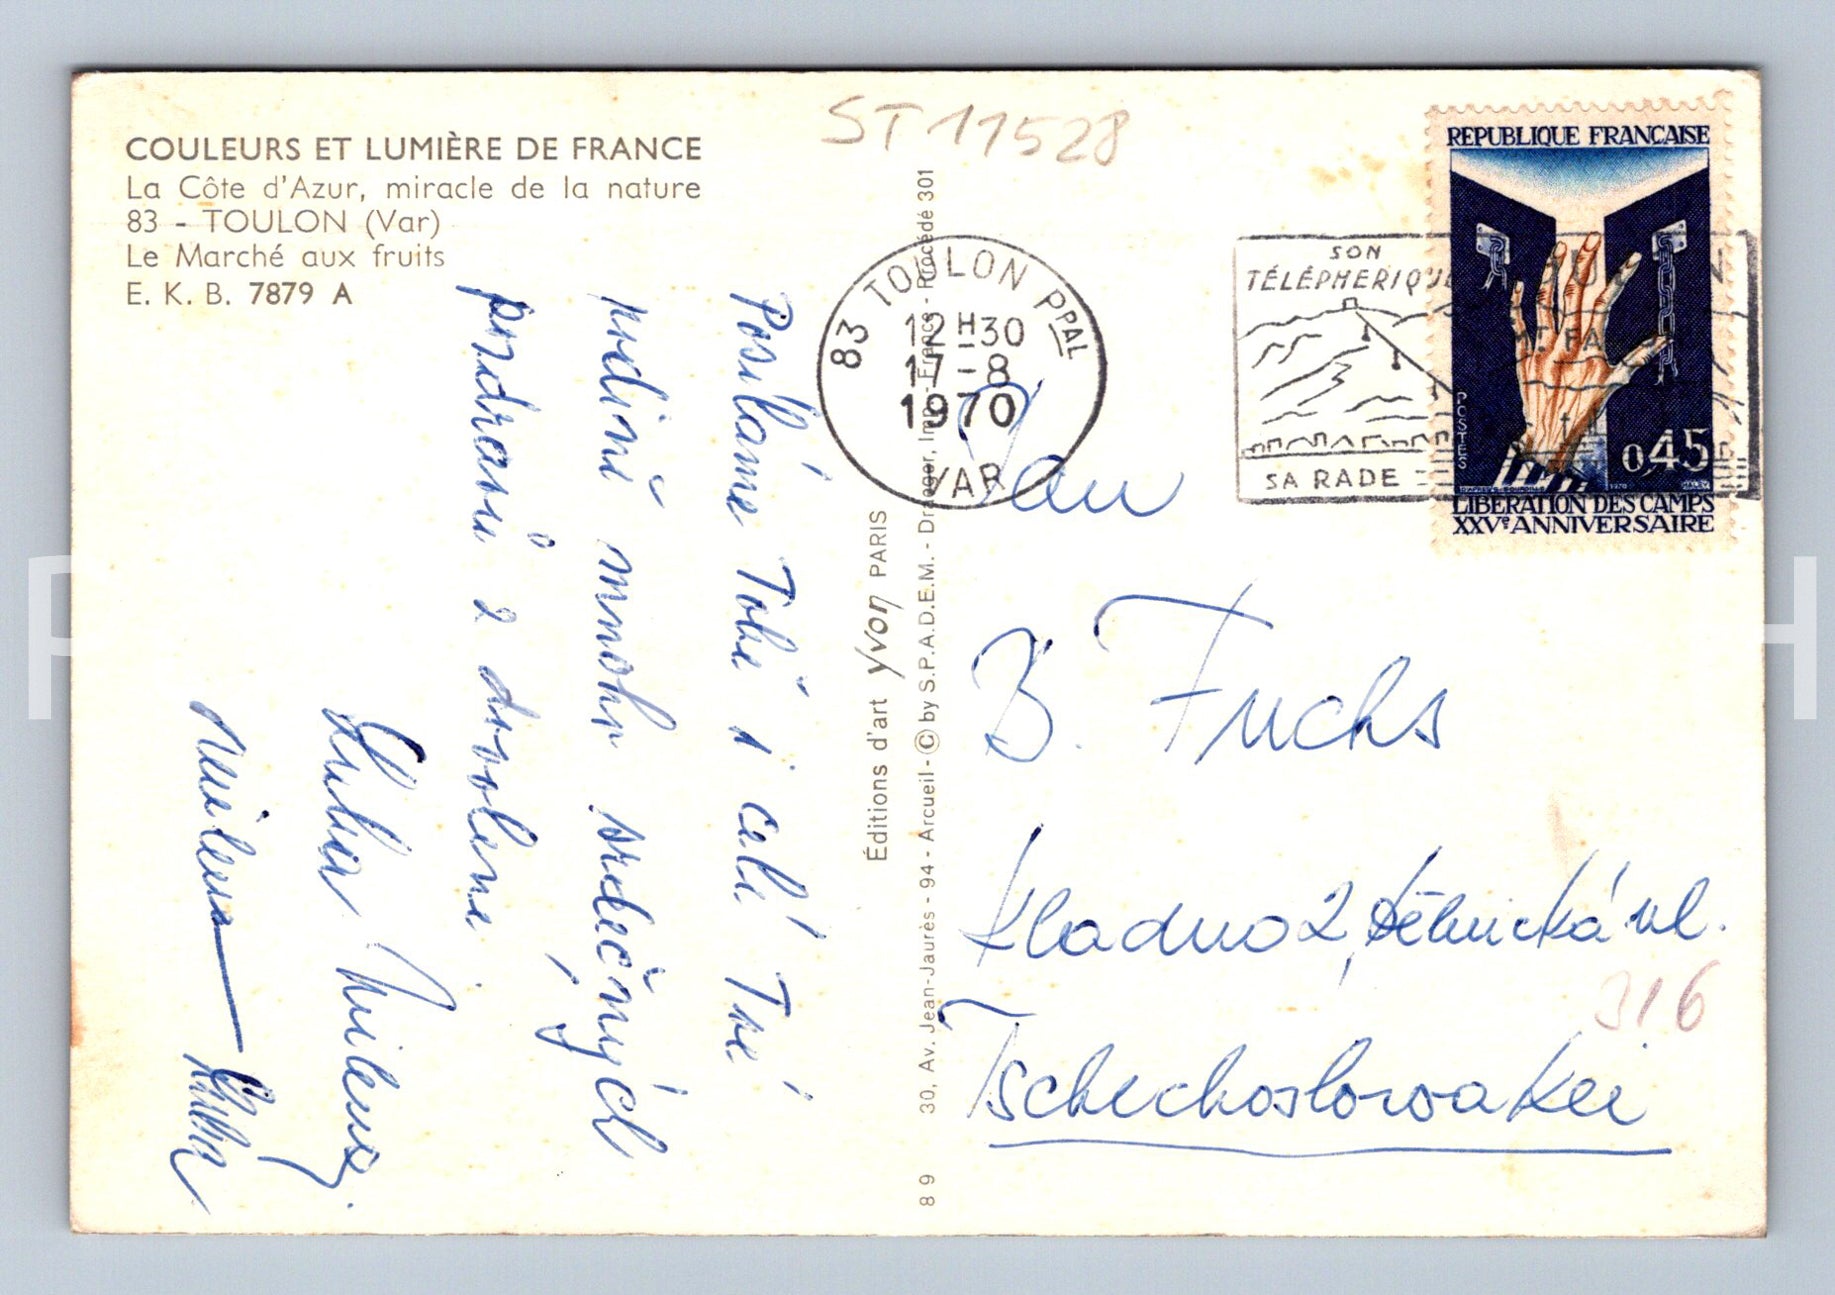 COULEURS ET LUMIÈRE DE FRANCE
La Côte d'Azur, miracle de la nature
83 - TOULON (Var)
Le Marché aux fruits
E. K. B. 7879 A
ST 11528
83 TOULON PPAL
12H30
17-8
1970
VAR
SON
TÉLÉPHERIQUE
SA RADE
REPUBLIQUE FRANÇAISE
POSTES
0,45
1970
HALEY
LIBERATION DES CAMPS
XXVe ANNIVERSAIRE
Posíláme Tobě i celé Tvé
rodině mnoho srdečných
pozdravů z dovolené.
Luba Milena
Milena
Éditions d'art yvon PARIS
30, Av. Jean-Jaurès - 94 - Arcueil - © by S.P.A.D.E.M. - Draeger, Imp. - France - Procédé 301
89
Pan
B. Fuchs
Kladno 2, Dělnická ul.
316
Tschechoslowakei